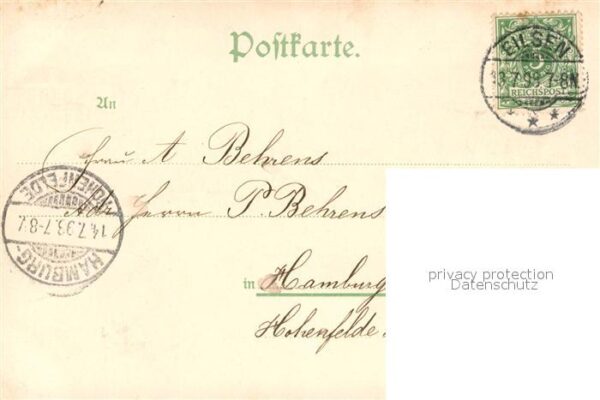 Postkarte.
EILSEN
13.7.99.7-8N.
REICHSPOST
An
Frau A Behrens
Adr Herrn P. Behrens
HOHENFELDE
14.7.99.7-8.V.
HAMBURG-
in Hamburg
Hohenfelde.
privacy protection
Datenschutz